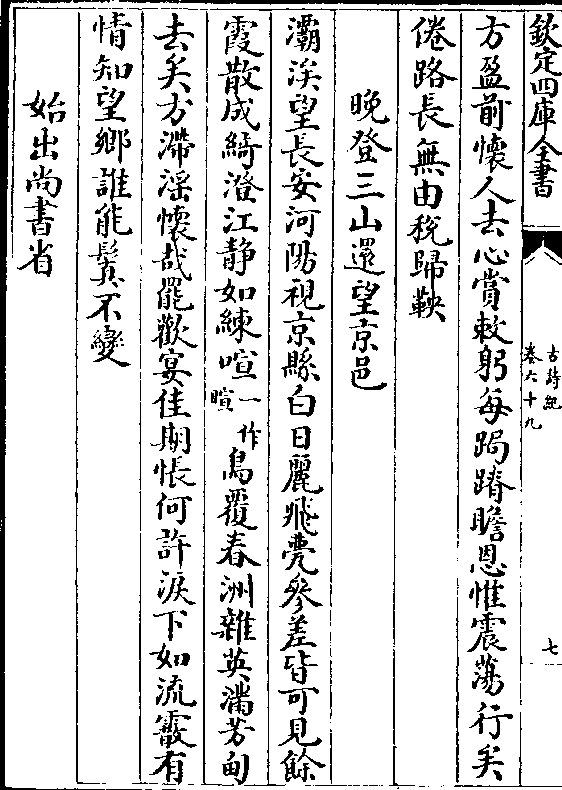 欽定四庫全書
古詩紀
卷六十九
七
方盈前懷人去心賞敕躬每跼蹐瞻恩惟震蕩行矣
倦路長無由稅歸鞅
晚登三山還望京邑
灞涘望長安河陽視京縣白日麗飛甍參差皆可見餘
霞散成綺澄江静如練喧一作暄鳥覆春洲雜英滿芳甸
去矣方滯淫懷哉罷歡宴佳期悵何許淚下如流霰有
情知望鄉誰能鬒不變
始出尚書省